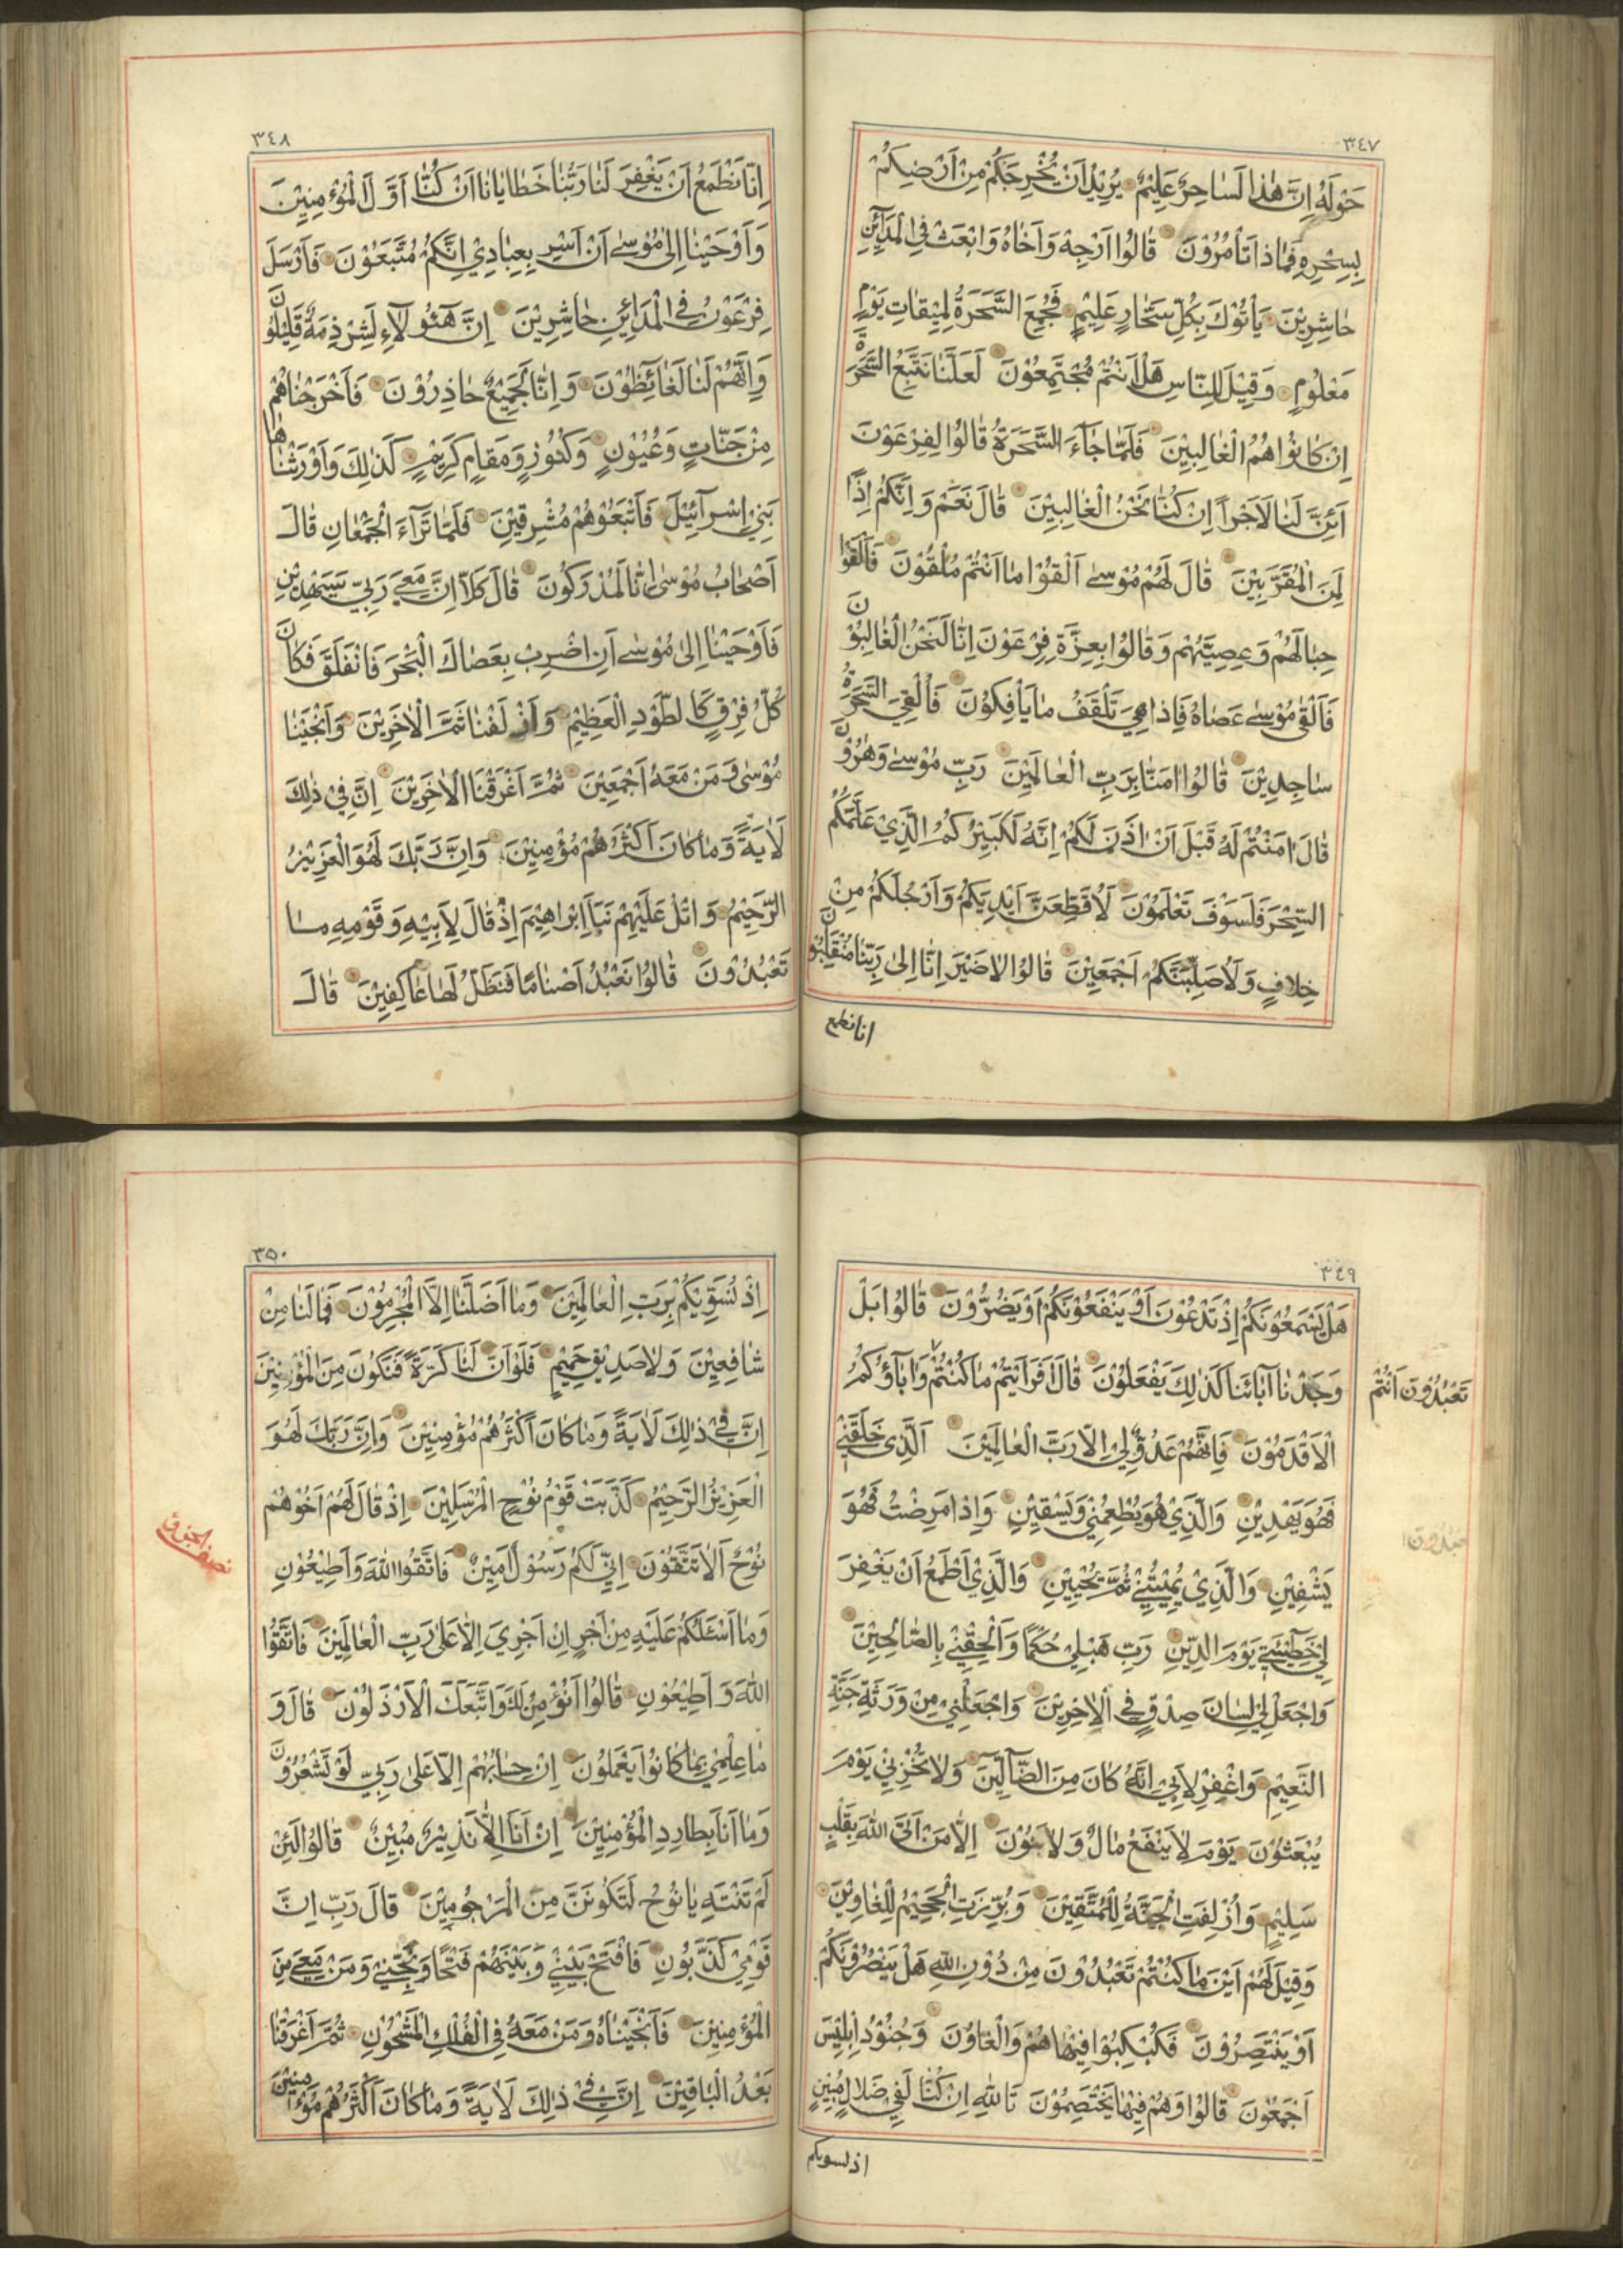 ٣٤٧
حَوْلَهُ اِنَّ هٰذَا لَسَاحِرٌ عَلِيْمٌ يُرِيْدُ اَنْ يُخْرِجَكُمْ مِنْ اَرْضِكُمْ
بِسِحْرِهِ فَمَاذَا تَأْمُرُوْنَ قَالُوْا اَرْجِهْ وَاَخَاهُ وَابْعَثْ فِي الْمَدَآئِنِ
حَاشِرِيْنَ يَأْتُوْكَ بِكُلِّ سَحَّارٍ عَلِيْمٍ فَجُمِعَ السَّحَرَةُ لِمِيْقَاتِ يَوْمٍ
مَعْلُوْمٍ وَقِيْلَ لِلنَّاسِ هَلْ اَنْتُمْ مُجْتَمِعُوْنَ لَعَلَّنَا نَتَّبِعُ السَّحَرَةَ
اِنْ كَانُوْا هُمُ الْغَالِبِيْنَ فَلَمَّا جَآءَ السَّحَرَةُ قَالُوْا لِفِرْعَوْنَ
اَئِنَّ لَنَا لَاَجْرًا اِنْ كُنَّا نَحْنُ الْغَالِبِيْنَ قَالَ نَعَمْ وَاِنَّكُمْ اِذًا
لَمِنَ الْمُقَرَّبِيْنَ قَالَ لَهُمْ مُوْسٰى اَلْقُوْا مَا اَنْتُمْ مُلْقُوْنَ فَاَلْقَوْا
حِبَالَهُمْ وَعِصِيَّهُمْ وَقَالُوْا بِعِزَّةِ فِرْعَوْنَ اِنَّا لَنَحْنُ الْغَالِبُوْنَ
فَاَلْقٰى مُوْسٰى عَصَاهُ فَاِذَا هِيَ تَلْقَفُ مَا يَأْفِكُوْنَ فَاُلْقِيَ السَّحَرَةُ
سَاجِدِيْنَ قَالُوْا اٰمَنَّا بِرَبِّ الْعَالَمِيْنَ رَبِّ مُوْسٰى وَهٰرُوْنَ
قَالَ اٰمَنْتُمْ لَهُ قَبْلَ اَنْ اٰذَنَ لَكُمْ اِنَّهُ لَكَبِيْرُكُمُ الَّذِيْ عَلَّمَكُمُ
السِّحْرَ فَلَسَوْفَ تَعْلَمُوْنَ لَاُقَطِّعَنَّ اَيْدِيَكُمْ وَاَرْجُلَكُمْ مِنْ
خِلَافٍ وَلَاُصَلِّبَنَّكُمْ اَجْمَعِيْنَ قَالُوْا لَا ضَيْرَ اِنَّا اِلٰى رَبِّنَا مُنْقَلِبُوْنَ
انا نطمع
٣٤٨
اِنَّا نَطْمَعُ اَنْ يَغْفِرَ لَنَا رَبُّنَا خَطَايَانَا اَنْ كُنَّا اَوَّلَ الْمُؤْمِنِيْنَ
وَاَوْحَيْنَا اِلٰى مُوْسٰى اَنْ اَسْرِ بِعِبَادِيْ اِنَّكُمْ مُتَّبَعُوْنَ فَاَرْسَلَ
فِرْعَوْنُ فِي الْمَدَائِنِ حَاشِرِيْنَ اِنَّ هٰٓؤُلَآءِ لَشِرْذِمَةٌ قَلِيْلُوْنَ
وَاِنَّهُمْ لَنَا لَغَائِظُوْنَ وَاِنَّا لَجَمِيْعٌ حَاذِرُوْنَ فَاَخْرَجْنَاهُمْ
مِنْ جَنَّاتٍ وَعُيُوْنٍ وَكُنُوْزٍ وَمَقَامٍ كَرِيْمٍ كَذٰلِكَ وَاَوْرَثْنَاهَا
بَنِيْ اِسْرَآئِيْلَ فَاَتْبَعُوْهُمْ مُشْرِقِيْنَ فَلَمَّا تَرَآءَ الْجَمْعَانِ قَالَ
اَصْحَابُ مُوْسٰى اِنَّا لَمُدْرَكُوْنَ قَالَ كَلَّا اِنَّ مَعِيَ رَبِّيْ سَيَهْدِيْنِ
فَاَوْحَيْنَا اِلٰى مُوْسٰى اَنِ اضْرِبْ بِعَصَاكَ الْبَحْرَ فَانْفَلَقَ فَكَانَ
كُلُّ فِرْقٍ كَالطَّوْدِ الْعَظِيْمِ وَاَزْلَفْنَا ثَمَّ الْاٰخَرِيْنَ وَاَنْجَيْنَا
مُوْسٰى وَمَنْ مَعَهُ اَجْمَعِيْنَ ثُمَّ اَغْرَقْنَا الْاٰخَرِيْنَ اِنَّ فِيْ ذٰلِكَ
لَاٰيَةً وَمَا كَانَ اَكْثَرُهُمْ مُؤْمِنِيْنَ وَاِنَّ رَبَّكَ لَهُوَ الْعَزِيْزُ
الرَّحِيْمُ وَاتْلُ عَلَيْهِمْ نَبَاَ اِبْرَاهِيْمَ اِذْ قَالَ لِاَبِيْهِ وَقَوْمِهِ مَا
تَعْبُدُوْنَ قَالُوْا نَعْبُدُ اَصْنَامًا فَنَظَلُّ لَهَا عَاكِفِيْنَ قَالَ
٣٤٩
هَلْ يَسْمَعُوْنَكُمْ اِذْ تَدْعُوْنَ اَوْ يَنْفَعُوْنَكُمْ اَوْ يَضُرُّوْنَ قَالُوْا بَلْ
وَجَدْنَا اٰبَائَنَا كَذٰلِكَ يَفْعَلُوْنَ قَالَ اَفَرَاَيْتُمْ مَا كُنْتُمْ وَاٰبَاؤُكُمُ
تَعْبُدُوْنَ اَنْتُمْ
الْاَقْدَمُوْنَ فَاِنَّهُمْ عَدُوٌّ لِيْ اِلَّا رَبَّ الْعَالَمِيْنَ اَلَّذِيْ خَلَقَنِيْ
فَهُوَ يَهْدِيْنِ وَالَّذِيْ هُوَ يُطْعِمُنِيْ وَيَسْقِيْنِ وَاِذَا مَرِضْتُ فَهُوَ
يَشْفِيْنِ وَالَّذِيْ يُمِيْتُنِيْ ثُمَّ يُحْيِيْنِ وَالَّذِيْ اَطْمَعُ اَنْ يَغْفِرَ
لِيْ خَطِيْئَتِيْ يَوْمَ الدِّيْنِ رَبِّ هَبْ لِيْ حُكْمًا وَاَلْحِقْنِيْ بِالصَّالِحِيْنَ
وَاجْعَلْ لِيْ لِسَانَ صِدْقٍ فِي الْاٰخِرِيْنَ وَاجْعَلْنِيْ مِنْ وَرَثَةِ جَنَّةِ
النَّعِيْمِ وَاغْفِرْ لِاَبِيْ اِنَّهُ كَانَ مِنَ الضَّآلِّيْنَ وَلَا تُخْزِنِيْ يَوْمَ
يُبْعَثُوْنَ يَوْمَ لَا يَنْفَعُ مَالٌ وَلَا بَنُوْنَ اِلَّا مَنْ اَتَى اللّٰهَ بِقَلْبٍ
سَلِيْمٍ وَاُزْلِفَتِ الْجَنَّةُ لِلْمُتَّقِيْنَ وَبُرِّزَتِ الْجَحِيْمُ لِلْغَاوِيْنَ
وَقِيْلَ لَهُمْ اَيْنَ مَا كُنْتُمْ تَعْبُدُوْنَ مِنْ دُوْنِ اللّٰهِ هَلْ يَنْصُرُوْنَكُمْ
اَوْ يَنْتَصِرُوْنَ فَكُبْكِبُوْا فِيْهَا هُمْ وَالْغَاوُنَ وَجُنُوْدُ اِبْلِيْسَ
اَجْمَعُوْنَ قَالُوْا وَهُمْ فِيْهَا يَخْتَصِمُوْنَ تَاللّٰهِ اِنْ كُنَّا لَفِيْ ضَلَالٍ مُبِيْنٍ
اذ نسويكم
٣٥٠
اِذْ نُسَوِّيْكُمْ بِرَبِّ الْعَالَمِيْنَ وَمَا اَضَلَّنَا اِلَّا الْمُجْرِمُوْنَ فَمَا لَنَا مِنْ
شَافِعِيْنَ وَلَا صَدِيْقٍ حَمِيْمٍ فَلَوْ اَنَّ لَنَا كَرَّةً فَنَكُوْنَ مِنَ الْمُؤْمِنِيْنَ
اِنَّ فِيْ ذٰلِكَ لَاٰيَةً وَمَا كَانَ اَكْثَرُهُمْ مُؤْمِنِيْنَ وَاِنَّ رَبَّكَ لَهُوَ
الْعَزِيْزُ الرَّحِيْمُ كَذَّبَتْ قَوْمُ نُوْحٍ الْمُرْسَلِيْنَ اِذْ قَالَ لَهُمْ اَخُوْهُمْ
نُوْحٌ اَلَا تَتَّقُوْنَ اِنِّيْ لَكُمْ رَسُوْلٌ اَمِيْنٌ فَاتَّقُوا اللّٰهَ وَاَطِيْعُوْنِ
نصف الجزء
وَمَا اَسْئَلُكُمْ عَلَيْهِ مِنْ اَجْرٍ اِنْ اَجْرِيَ اِلَّا عَلٰى رَبِّ الْعَالَمِيْنَ فَاتَّقُوا
اللّٰهَ وَاَطِيْعُوْنِ قَالُوْا اَنُؤْمِنُ لَكَ وَاتَّبَعَكَ الْاَرْذَلُوْنَ قَالَ وَ
مَا عِلْمِيْ بِمَا كَانُوْا يَعْمَلُوْنَ اِنْ حِسَابُهُمْ اِلَّا عَلٰى رَبِّيْ لَوْ تَشْعُرُوْنَ
وَمَا اَنَا بِطَارِدِ الْمُؤْمِنِيْنَ اِنْ اَنَا اِلَّا نَذِيْرٌ مُبِيْنٌ قَالُوْا لَئِنْ
لَمْ تَنْتَهِ يَا نُوْحُ لَتَكُوْنَنَّ مِنَ الْمَرْجُوْمِيْنَ قَالَ رَبِّ اِنَّ
قَوْمِيْ كَذَّبُوْنِ فَافْتَحْ بَيْنِيْ وَبَيْنَهُمْ فَتْحًا وَنَجِّنِيْ وَمَنْ مَعِيَ مِنَ
الْمُؤْمِنِيْنَ فَاَنْجَيْنَاهُ وَمَنْ مَعَهُ فِي الْفُلْكِ الْمَشْحُوْنِ ثُمَّ اَغْرَقْنَا
بَعْدُ الْبَاقِيْنَ اِنَّ فِيْ ذٰلِكَ لَاٰيَةً وَمَا كَانَ اَكْثَرُهُمْ مُؤْمِنِيْنَ